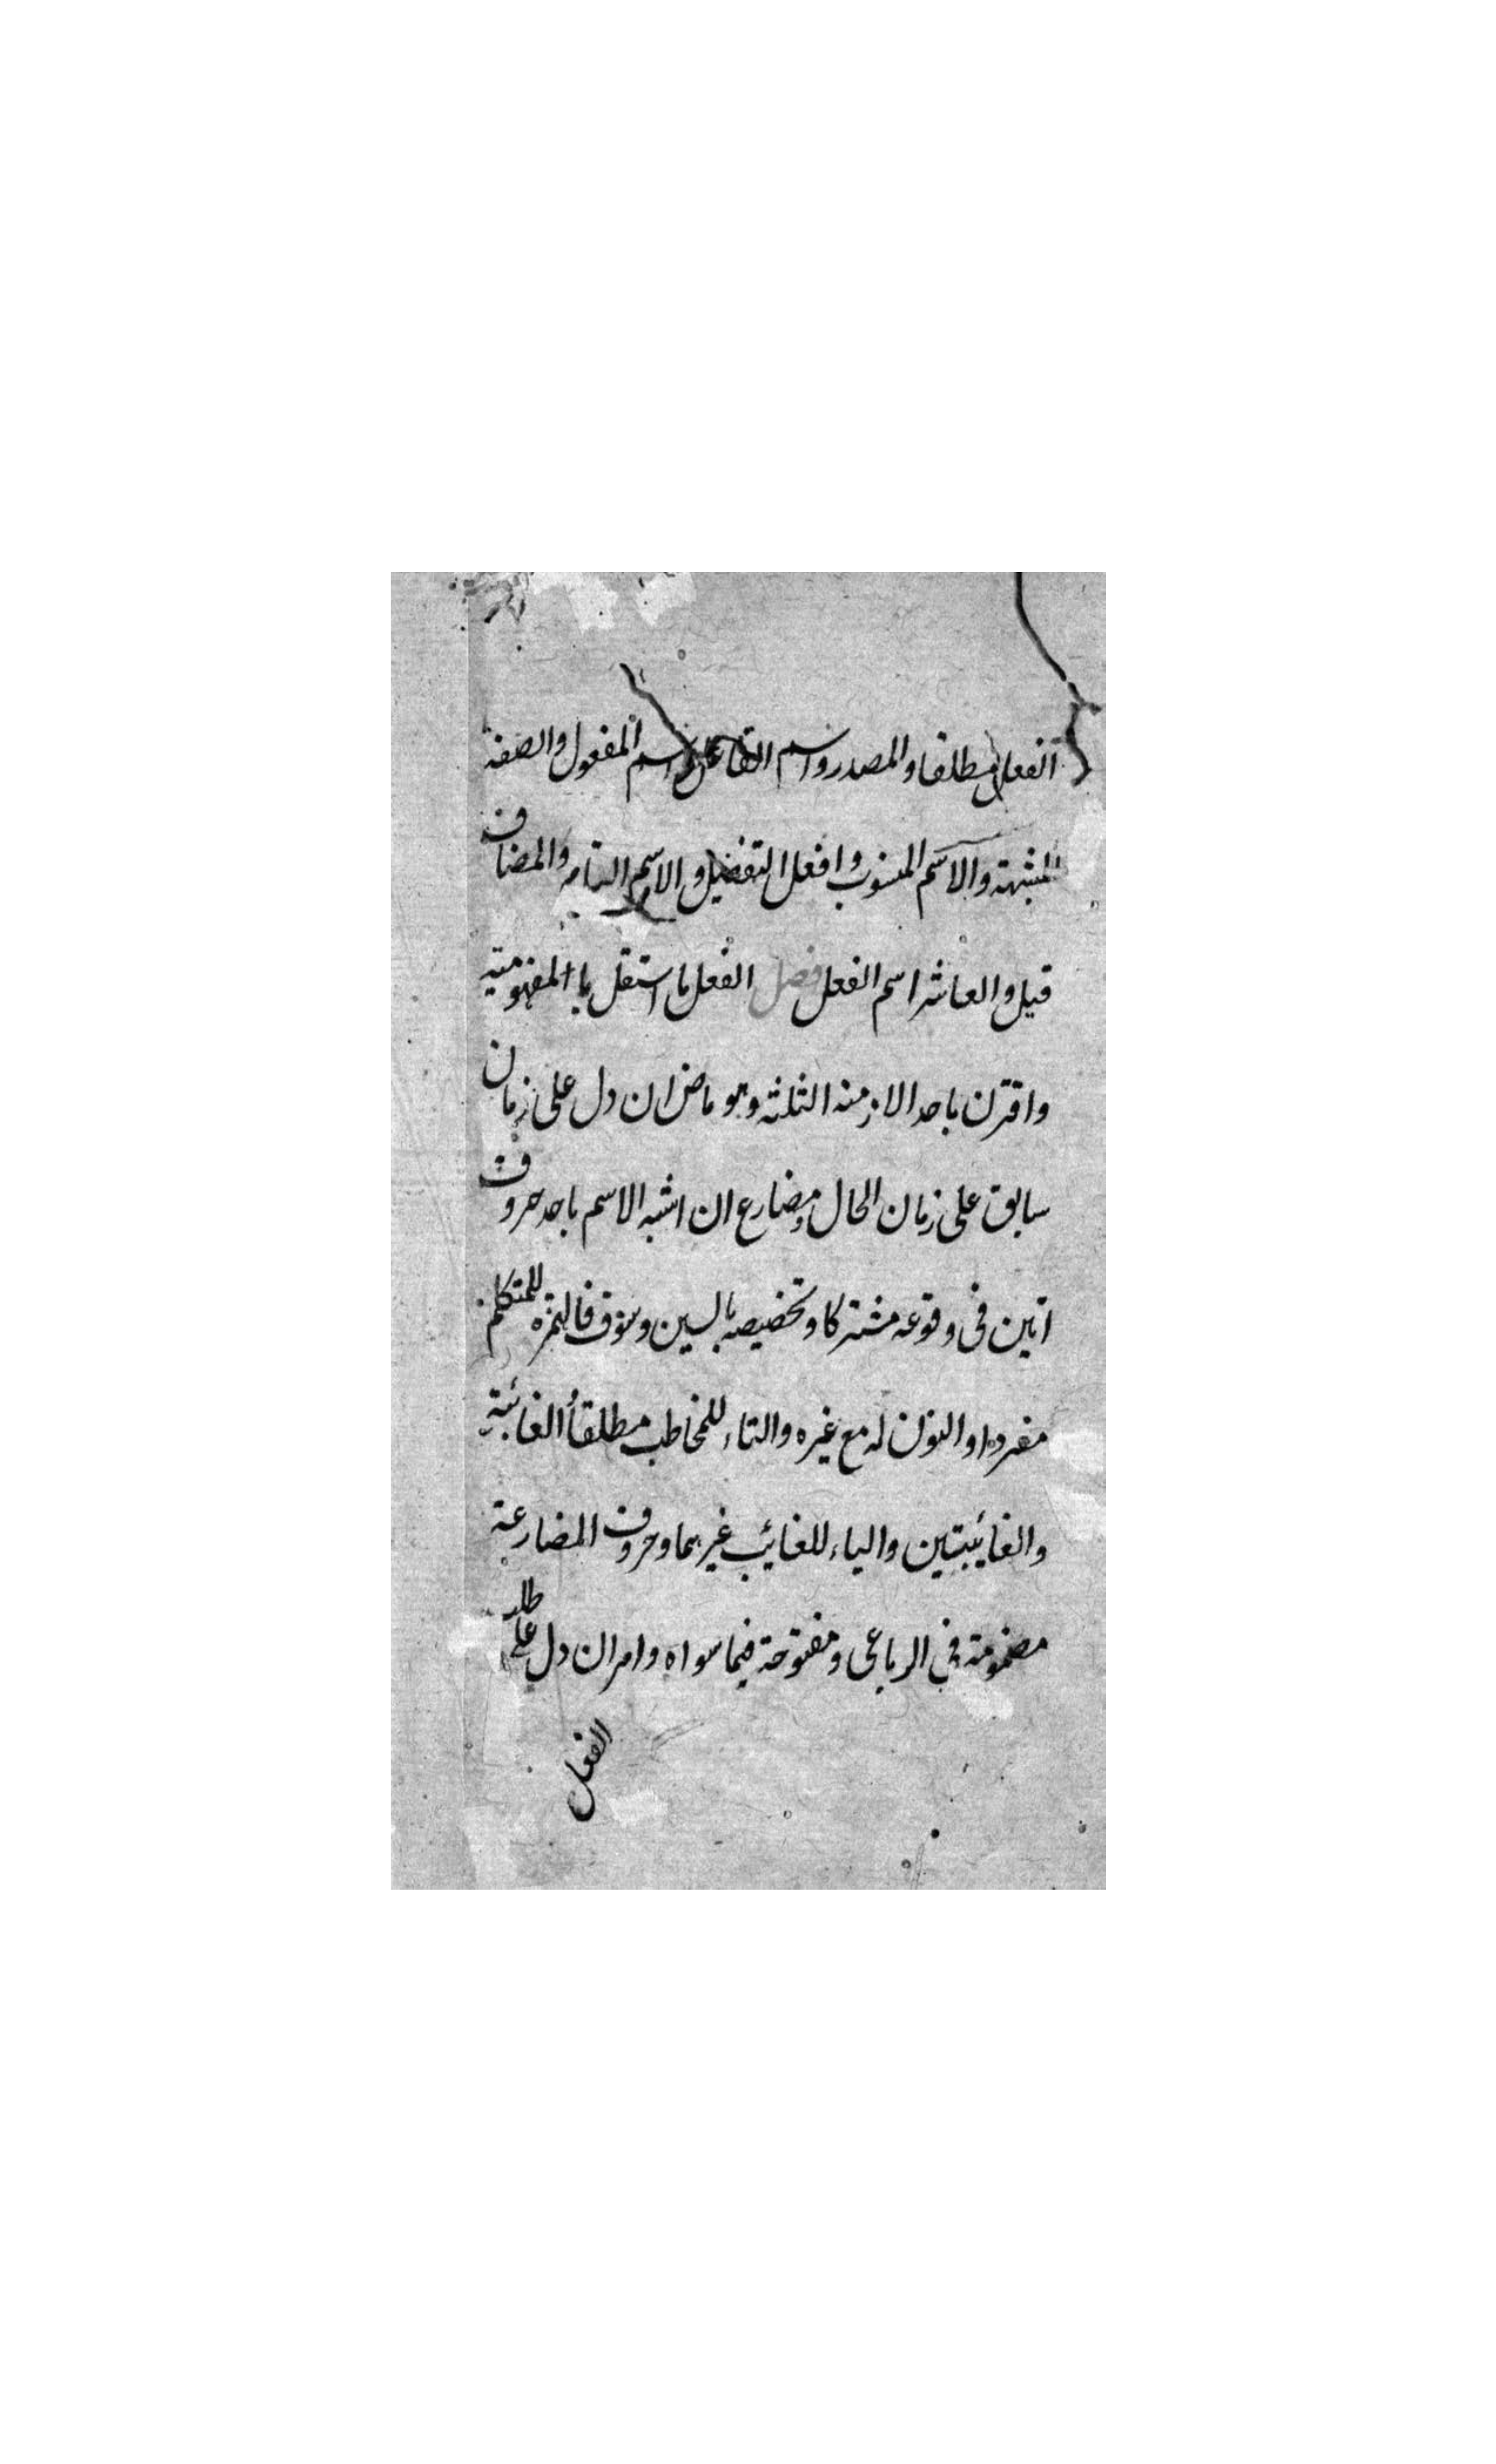 الفعل مطلقا والمصدر واسم الفاعل واسم المفعول والصفة
المشبهة والاسم المنسوب وافعل التفضيل والاسم التام والمضاف
قيل والعاشر اسم الفعل فصل الفعل ما استقل با المفهومية
واقترن باحد الازمنة الثلثة وهو ماض ان دل على زمان
سابق على زمان الحال ومضارع ان اشبه الاسم باحد حروف
اتين فى وقوعه مشتركا وتخصيصه بالسين وسوف فالهمزة للمتكلم
مفردا والنون له مع غيره والتاء للمخاطب مطلقا الغائبة
والغائبتين والياء للغائب غيرهما وحروف المضارعة
مضمومة فى الرباعى ومفتوحة فيما سواه وامر ان دل على طلب
الفعل